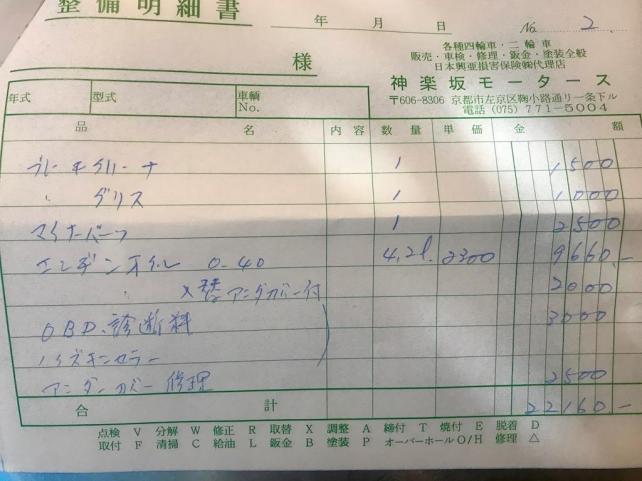 整備明細書
年 月 日 No. 2
様
各種四輪車・二輪車
販売・車検・修理・鈑金・塗装全般
日本興亜損害保険㈱代理店
神楽坂モータース
〒606-8306 京都市左京区鞠小路通り一条下ル
電話 (075) 771-5004
年式 型式 車輌No.
品名 内容 数量 単価 金額
ブレーキクリーナ 1 1500
〃 グリス 1 1000
マイナーパーツ 1 2500
エンジンオイル 0-40 4.2l. 2300 9660-
〃 X替 アンダカバー付 2000
OBD.診断料 3000
ノイズキャンセラー
アンダーカバー修理 2500
合計 22160-
点検 V 分解 W 修正 R 取替 X 調整 A 締付 T 焼付 E 脱着 D
取付 F 清掃 C 給油 L 鈑金 B 塗装 P オーバーホール O/H 修理 △